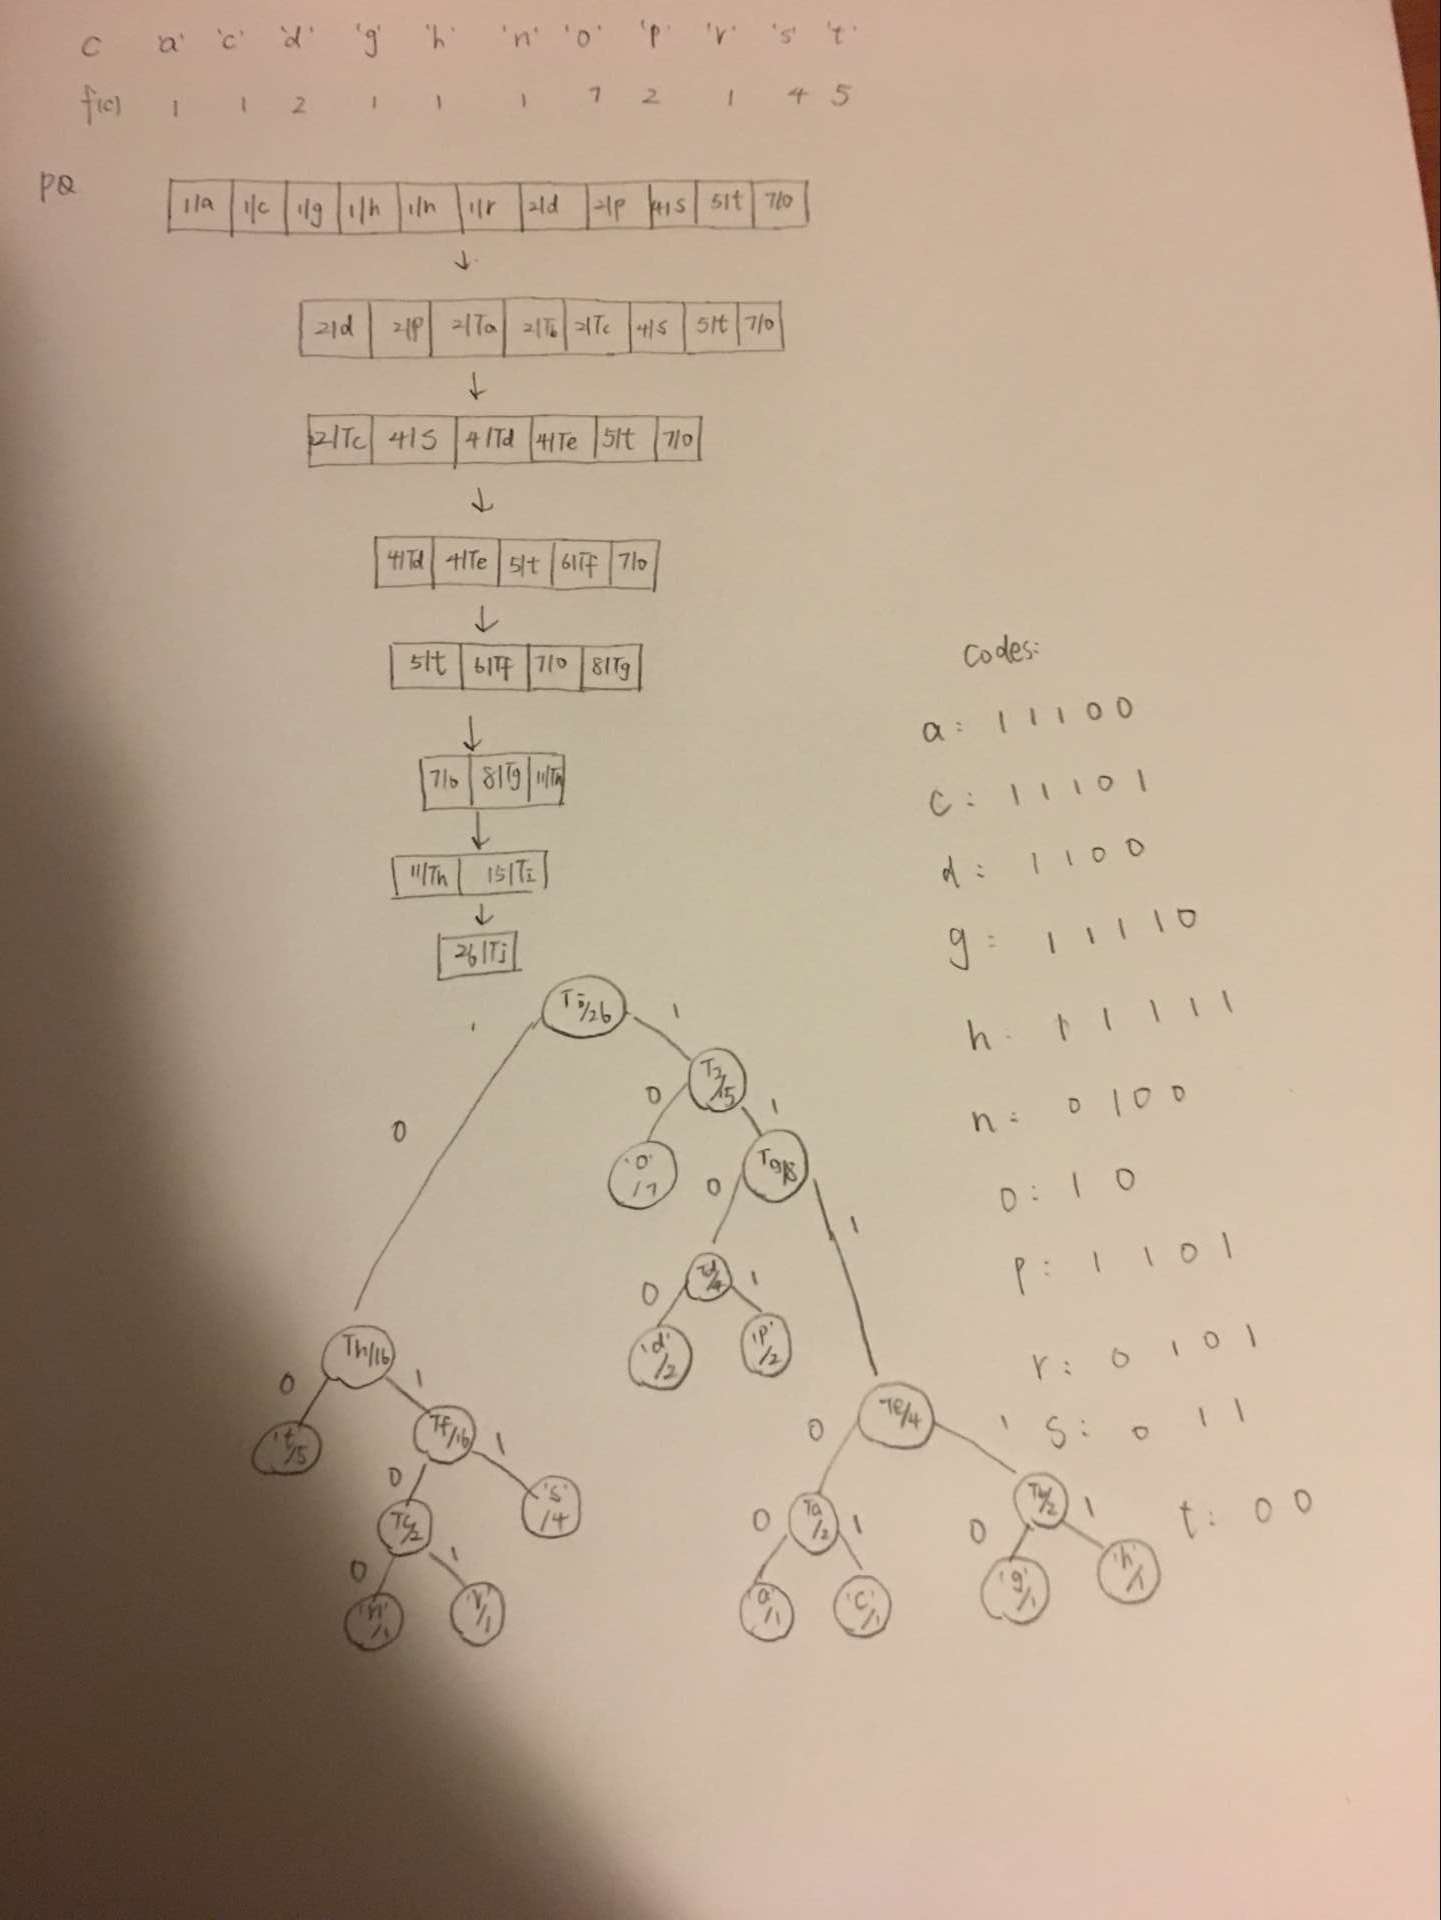 C 'a' 'c' 'd' 'g' 'h' 'n' 'o' 'p' 'r' 's' 't'
f(c) 1 1 2 1 1 1 7 2 1 4 5
PQ
1/a 1/c 1/g 1/h 1/n 1/r 2/d 2/p 4/s 5/t 7/o
↓
2/d 2/p 2/Ta 2/Tb 2/Tc 4/s 5/t 7/o
↓
2/Tc 4/S 4/Td 4/Te 5/t 7/o
↓
4/Td 4/Te 5/t 6/Tf 7/o
↓
5/t 6/Tf 7/o 8/Tg
↓
7/o 8/Tg 11/Th
↓
11/Th 15/Ti
↓
26/Tj
/26 1
0 /15
0 1
'o' /7 Tg/8
0 1
Td/4
0 1
'd' /2 'p' /2
Th/16
0 1
't' /5 Tf/16
0 1
Tc/2 's' /4
0 1
'n' /1 'r' /1
Te/4
0 1
Ta /2 Tb/2
0 1 0 1
'a' /1 'c' /1 'g' /1 'h' /1
Codes:
a: 11100
c: 11101
d: 1100
g: 11110
h: 11111
n: 0100
o: 10
p: 1101
r: 0101
s: 011
t: 00